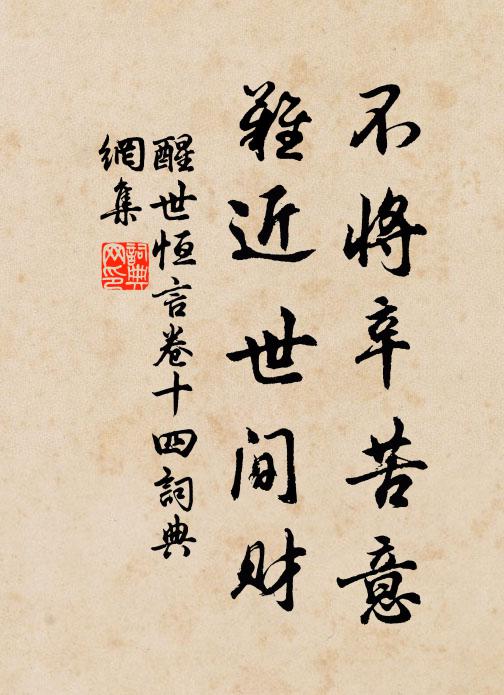 不将辛苦意
難近世間财
醒世恒言卷十四詞典
網集
詞典网印